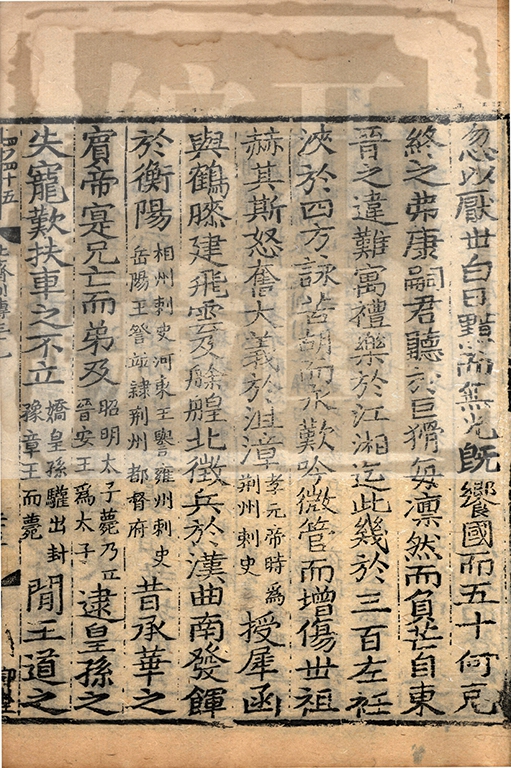 忽以厭世白日黯而無光旣饗國而五十何克
終之弗康嗣君聽於巨猾每凛然而負芒自東
晉之違難寓禮樂於江湘迄此幾於三百左衽
浹於四方詠苦胡而永歎吟微管而增傷世祖
赫其斯怒奮大義於沮漳
孝元帝時爲
荆州刺史
授犀函
與鶴膝建飛雲及艅艎北徵兵於漢曲南發餫
於衡陽
相州刺史河東王譽雍州刺史
岳陽王詧並隷荆州都督府
昔承華之
賔帝寔兄亡而弟及
昭明太子薨乃立
晉安王爲太子
逮皇孫之
失寵歎扶車之不立
嬌皇孫驩出封
豫章王而薨
間王道之
四十五